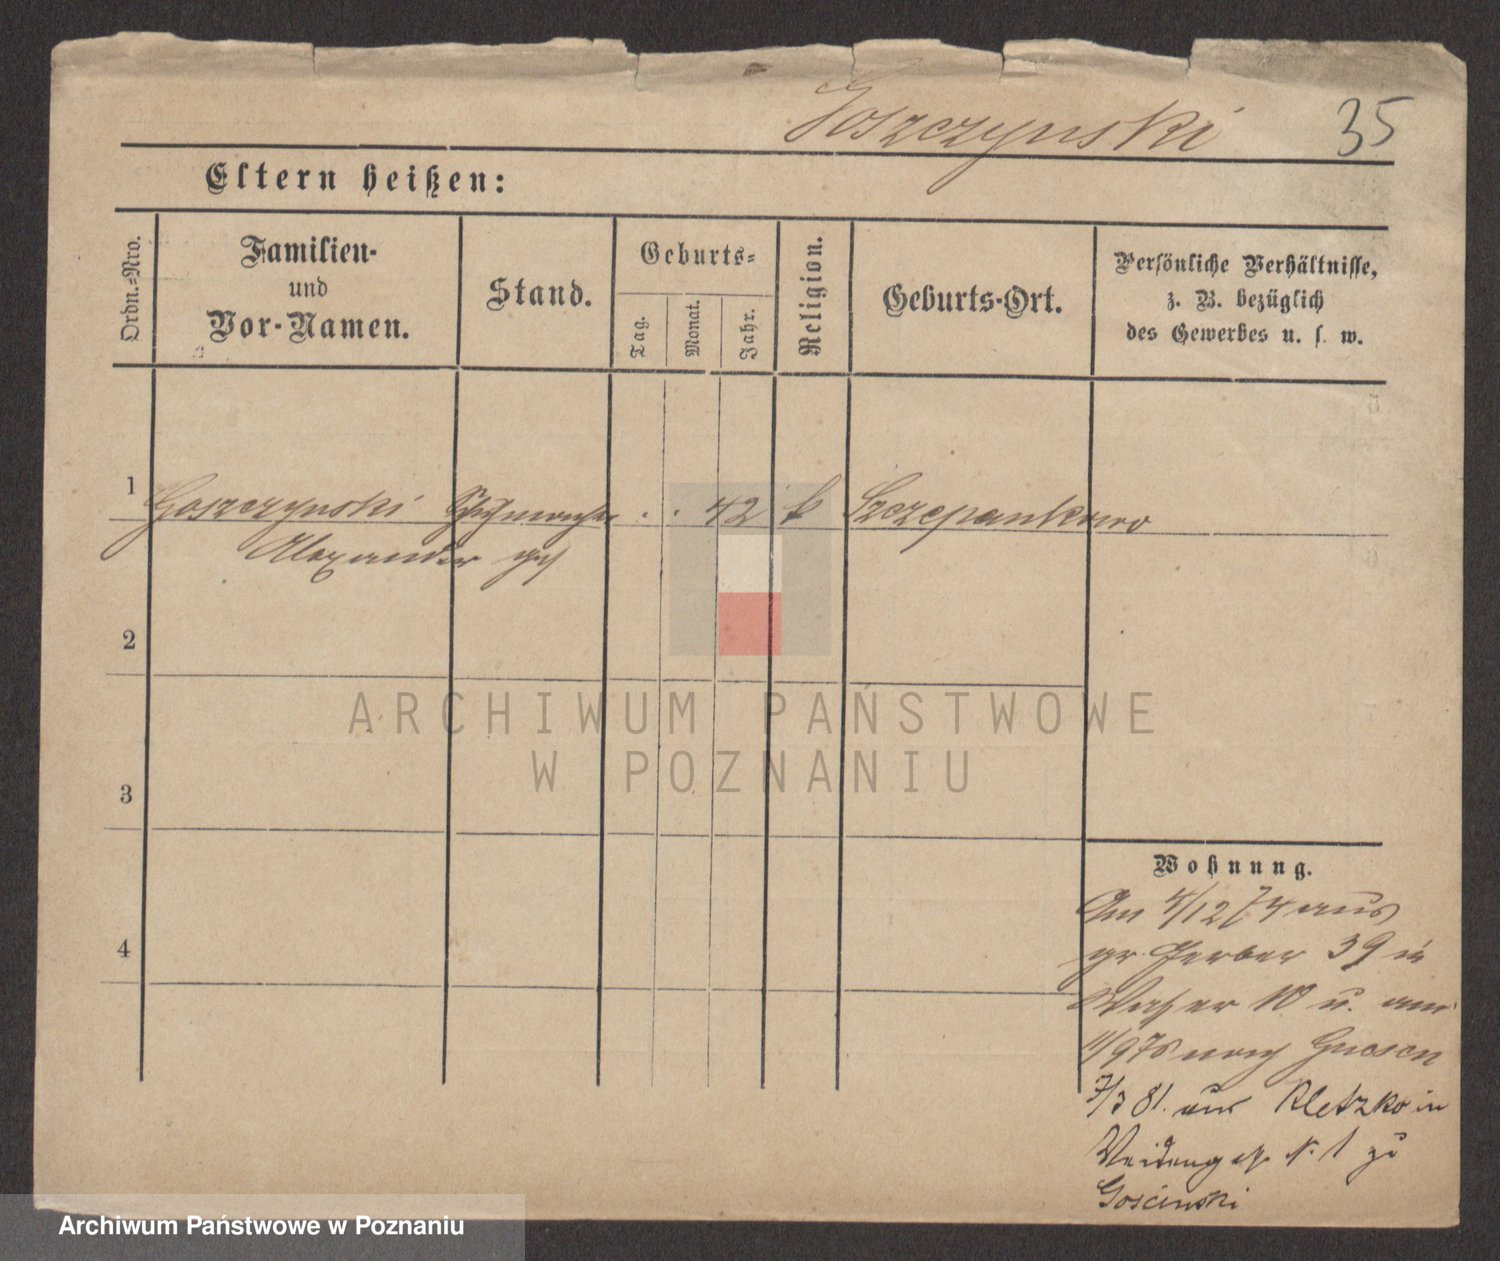 Goszczynski 35
Eltern heißen:
Ordn.-Nro.
Familien-
und
Vor-Namen.
Stand.
Geburts-
Tag.
Monat.
Jahr.
Religion.
Geburts-Ort.
Persönliche Verhältnisse,
z. B. bezüglich
des Gewerbes u. s. w.
1 Goszczynski . . 42 k Szczepankowo
Alexander
2
3
4
Wohnung.
Am 4/12 74 aus
gr. Gerber 39 in
Wasser 10 u. am
11/9 75 nach Gnesen
7/3 81. aus Kletzko in
N. 1 zu
Gościnski
ARCHIWUM PAŃSTWOWE
W POZNANIU
Archiwum Państwowe w Poznaniu